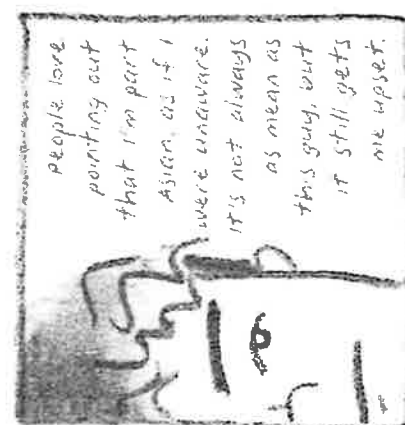 people love
pointing out
that i'm part
Asian, as if i
were unaware.
it's not always
as mean as
this guy, but
it still gets
me upset.